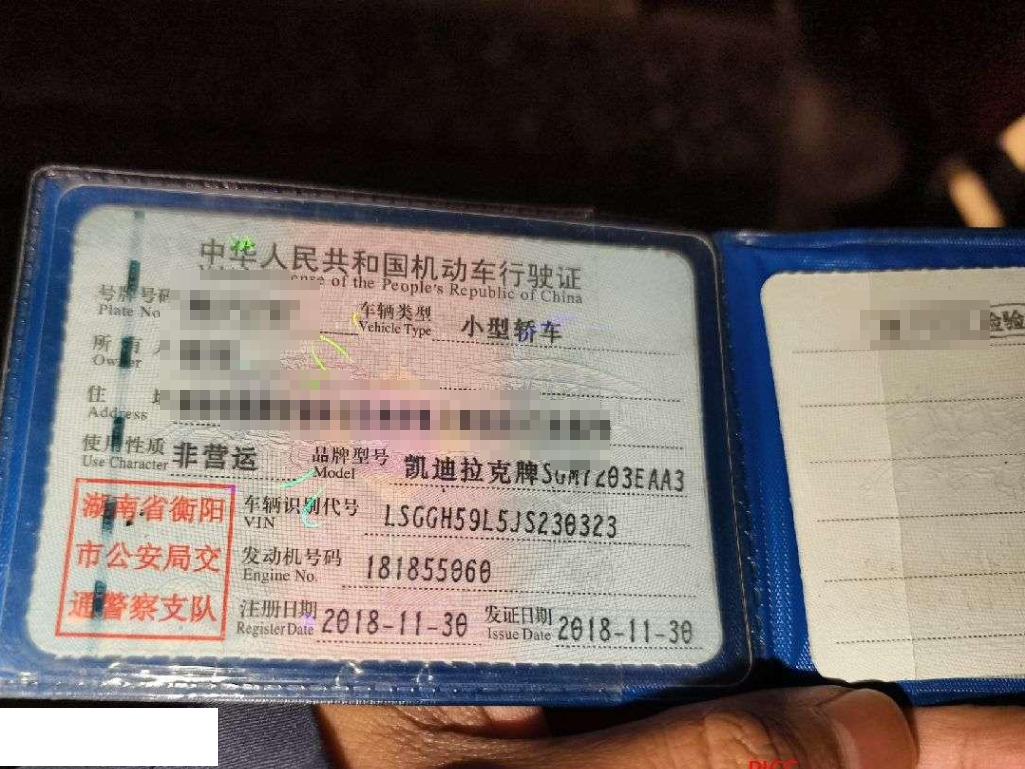 中华人民共和国机动车行驶证
ense of the People's Republic of China
号牌号码
Plate No
车辆类型 小型轿车
Vehicle Type
所有人
Owner
住址
Address
使用性质 非营运
Use Character
品牌型号 凯迪拉克牌SGM7203EAA3
Model
湖南省衡阳
市公安局交
通警察支队
车辆识别代号 LSGGH59L5JS230323
VIN
发动机号码 181855060
Engine No.
注册日期 2018-11-30
Register Date
发证日期 2018-11-30
Issue Date
检验